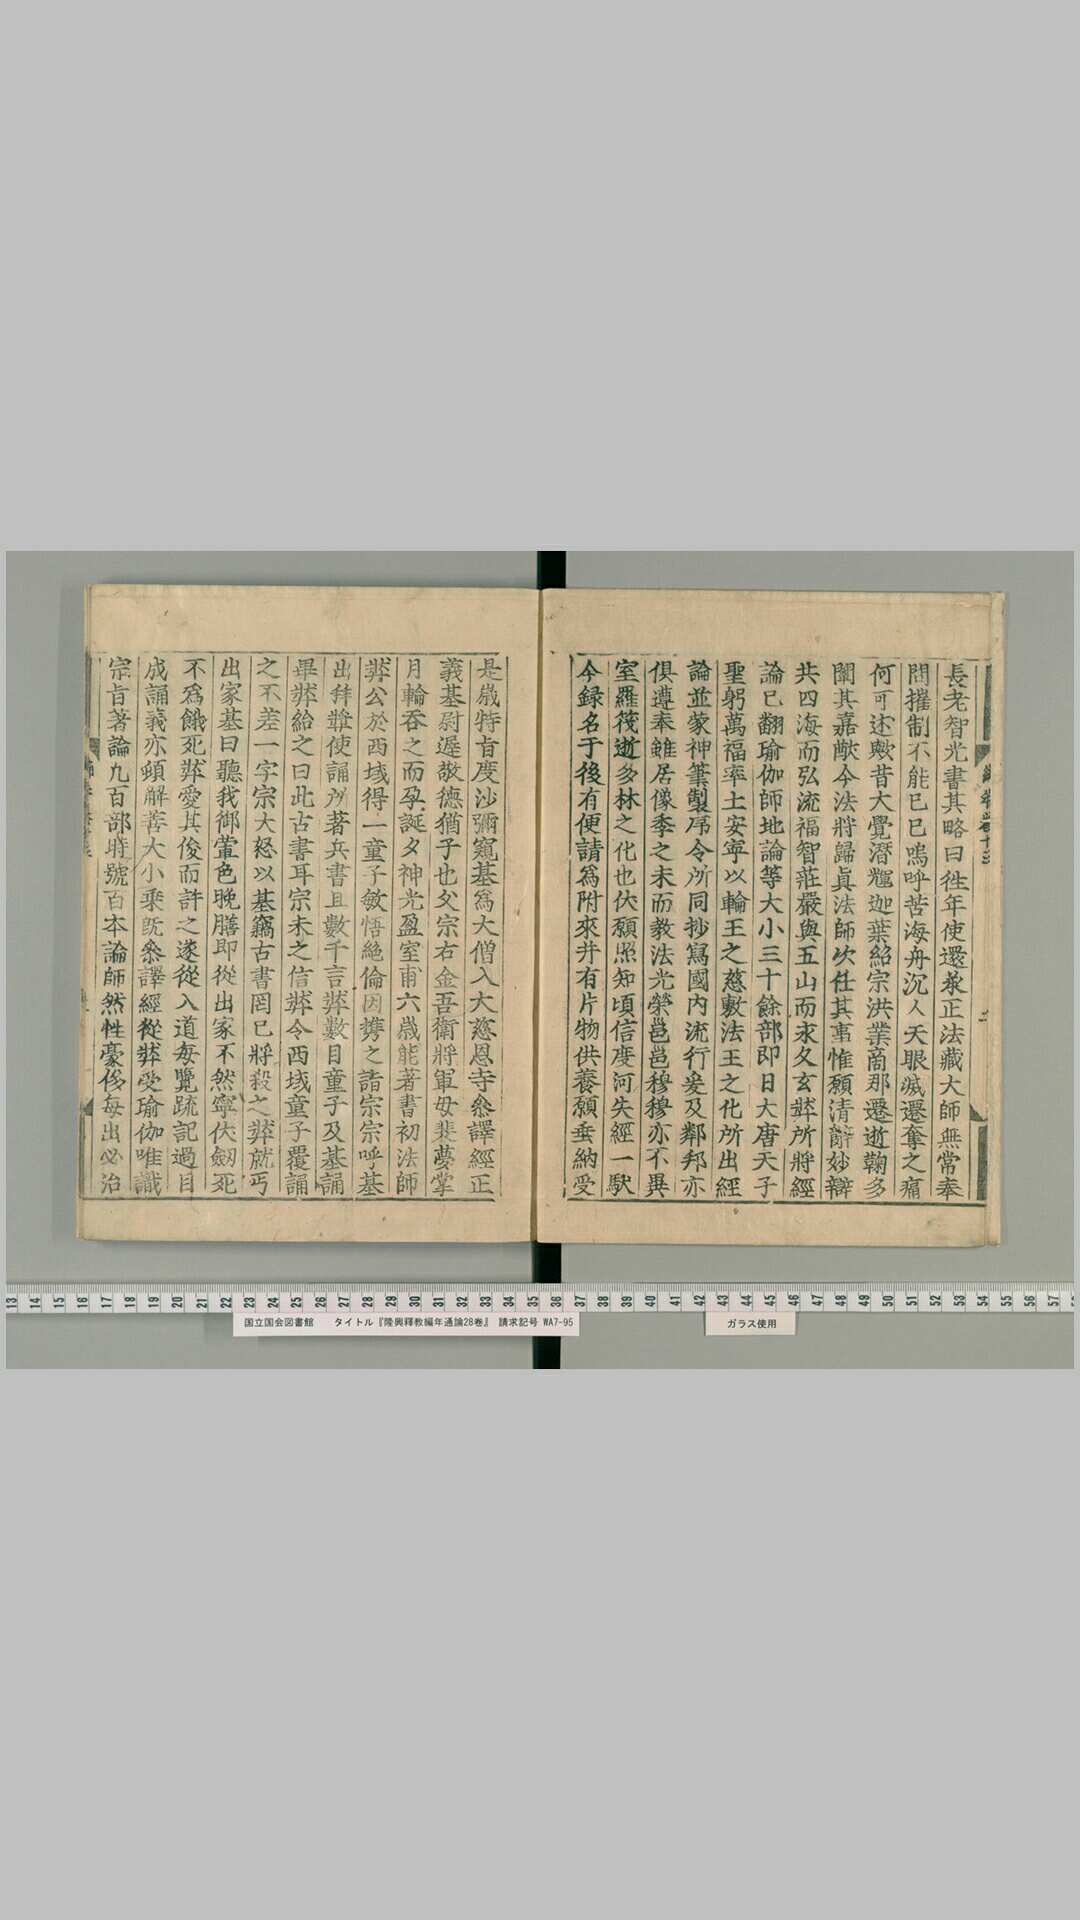 長老智光書其略曰徃年使還承正法藏大師無常奉
問摧制不能已已嗚呼苦海舟沉人天眼滅遷奪之痛
何可述歟昔大覺潛輝迦葉紹宗洪業商那遷逝鞠多
闡其嘉猷今法將歸眞法師次任其事惟願清辭妙辯
共四海而弘流福智莊嚴與五山而永久玄奘所將經
論已翻瑜伽師地論等大小三十餘部即日大唐天子
聖躬萬福率土安寧以輪王之慈敷法王之化所出經
論並蒙神筆製序令所同抄寫國內流行爰及鄰邦亦
俱遵奉雖居像季之末而教法光榮邕邕穆穆亦不異
室羅筏逝多林之化也伏願照知頃信度河失經一䭾
今録名于後有便請爲附來并有片物供養願垂納受
是歲特旨度沙彌窺基爲大僧入大慈恩寺叅譯經正
義基尉遲敬德猶子也父宗右金吾衛將軍母裴夢掌
月輪吞之而孕誕夕神光盈室甫六歲能著書初法師
奘公於西域得一童子敏悟絕倫因携之詣宗宗呼基
出拜奘使誦所著兵書且數千言奘數目童子及基誦
畢奘給之曰此古書耳宗未之信奘令西域童子覆誦
之不差一字宗大怒以基竊古書罔已將殺之奘就丐
出家基曰聽我御葷色晚膳即從出家不然寧伏劒死
不爲餓死奘愛其俊而許之遂從入道每覽䟽記過目
成誦義亦頓解善大小乘旣叅譯經從奘受瑜伽唯識
宗旨著論九百部時號百本論師然性豪侈每出必治
国立国会図書館 タイトル『隆興釋教編年通論28巻』 請求記号 WA7-95
ガラス使用
13 14 15 16 17 18 19 20 21 22 23 24 25 26 27 28 29 30 31 32 33 34 35 36 37 38 39 40 41 42 43 44 45 46 47 48 49 50 51 52 53 54 55 56 57